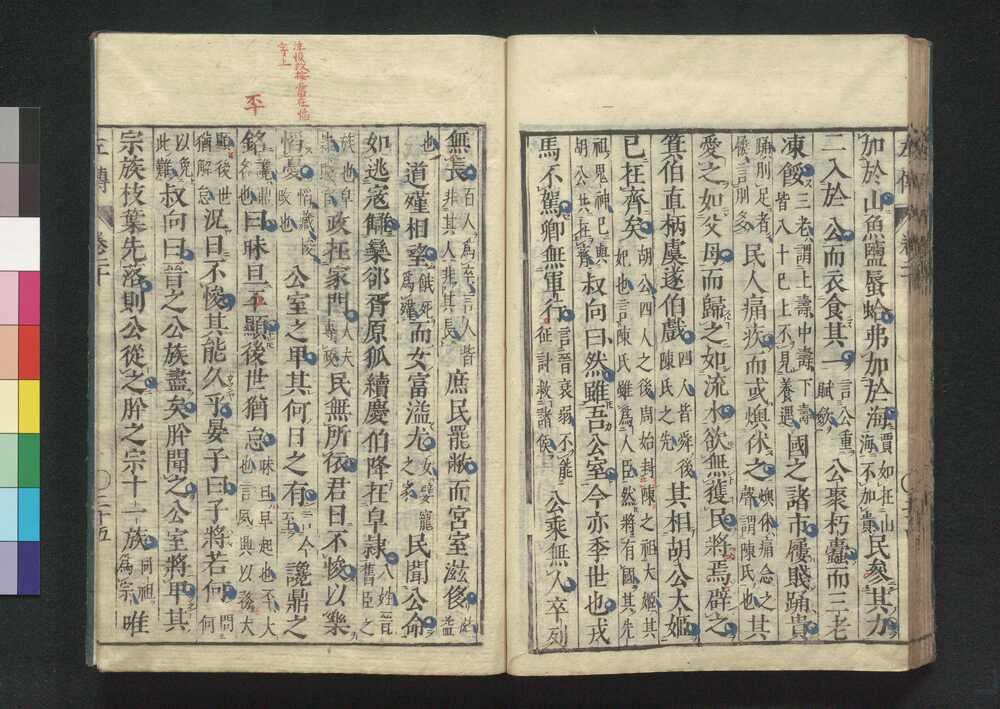 加於山魚鹽蜃蛤弗加於海賈如在山海不加貴民參其力
二入於公而衣食其一言公重賦斂公聚朽蠹而三老
凍餒三老謂上壽中壽下壽皆八十已上不見養遇國之諸市屨賤踊貴
踊刖足者屨言刖多民人痛疾而或燠休之燠休痛念之聲謂陳氏也其
愛之如父母而歸之如流水欲無獲民將焉辟之
箕伯直柄虞遂伯戲四人皆舜後陳氏之先其相胡公太姬
已在齊矣胡公四人之後周始封陳之祖大姬其妃也言陳氏雖爲人臣然將有國其先
祖鬼神已與胡公共在齊叔向曰然雖吾公室今亦季世也戎
馬不駕卿無軍行言晉衰弱不能征討救諸侯公乘無人卒列
無長百人爲卒言人皆非其人非其長庶民罷敝而宮室滋侈滋益
也道殣相望餓死爲殣而女富溢尤女嬖寵之家民聞公命
如逃寇讎欒郤胥原狐續慶伯降在皁隸八姓晉舊臣之
族也皁隸賤官政在家門大夫專政民無所依君日不悛以樂
慆憂慆藏也悛改也公室之卑其何日之有言今至讒鼎之
銘讒鼎名也曰昧旦丕顯後世猶怠昧旦早起也丕大也言夙興以務大
顯後世猶解怠況日不悛其能久乎晏子曰子將若何問何
以免此難叔向曰晉之公族盡矣肸聞之公室將卑其
宗族枝葉先落則公從之肸之宗十一族同祖爲宗唯
左傳
卷二十
二十五
丕